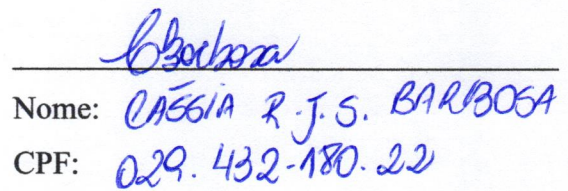 CBarbosa
Nome: CÁSSIA R.J.S. BARBOSA
CPF: 029.432-180.22